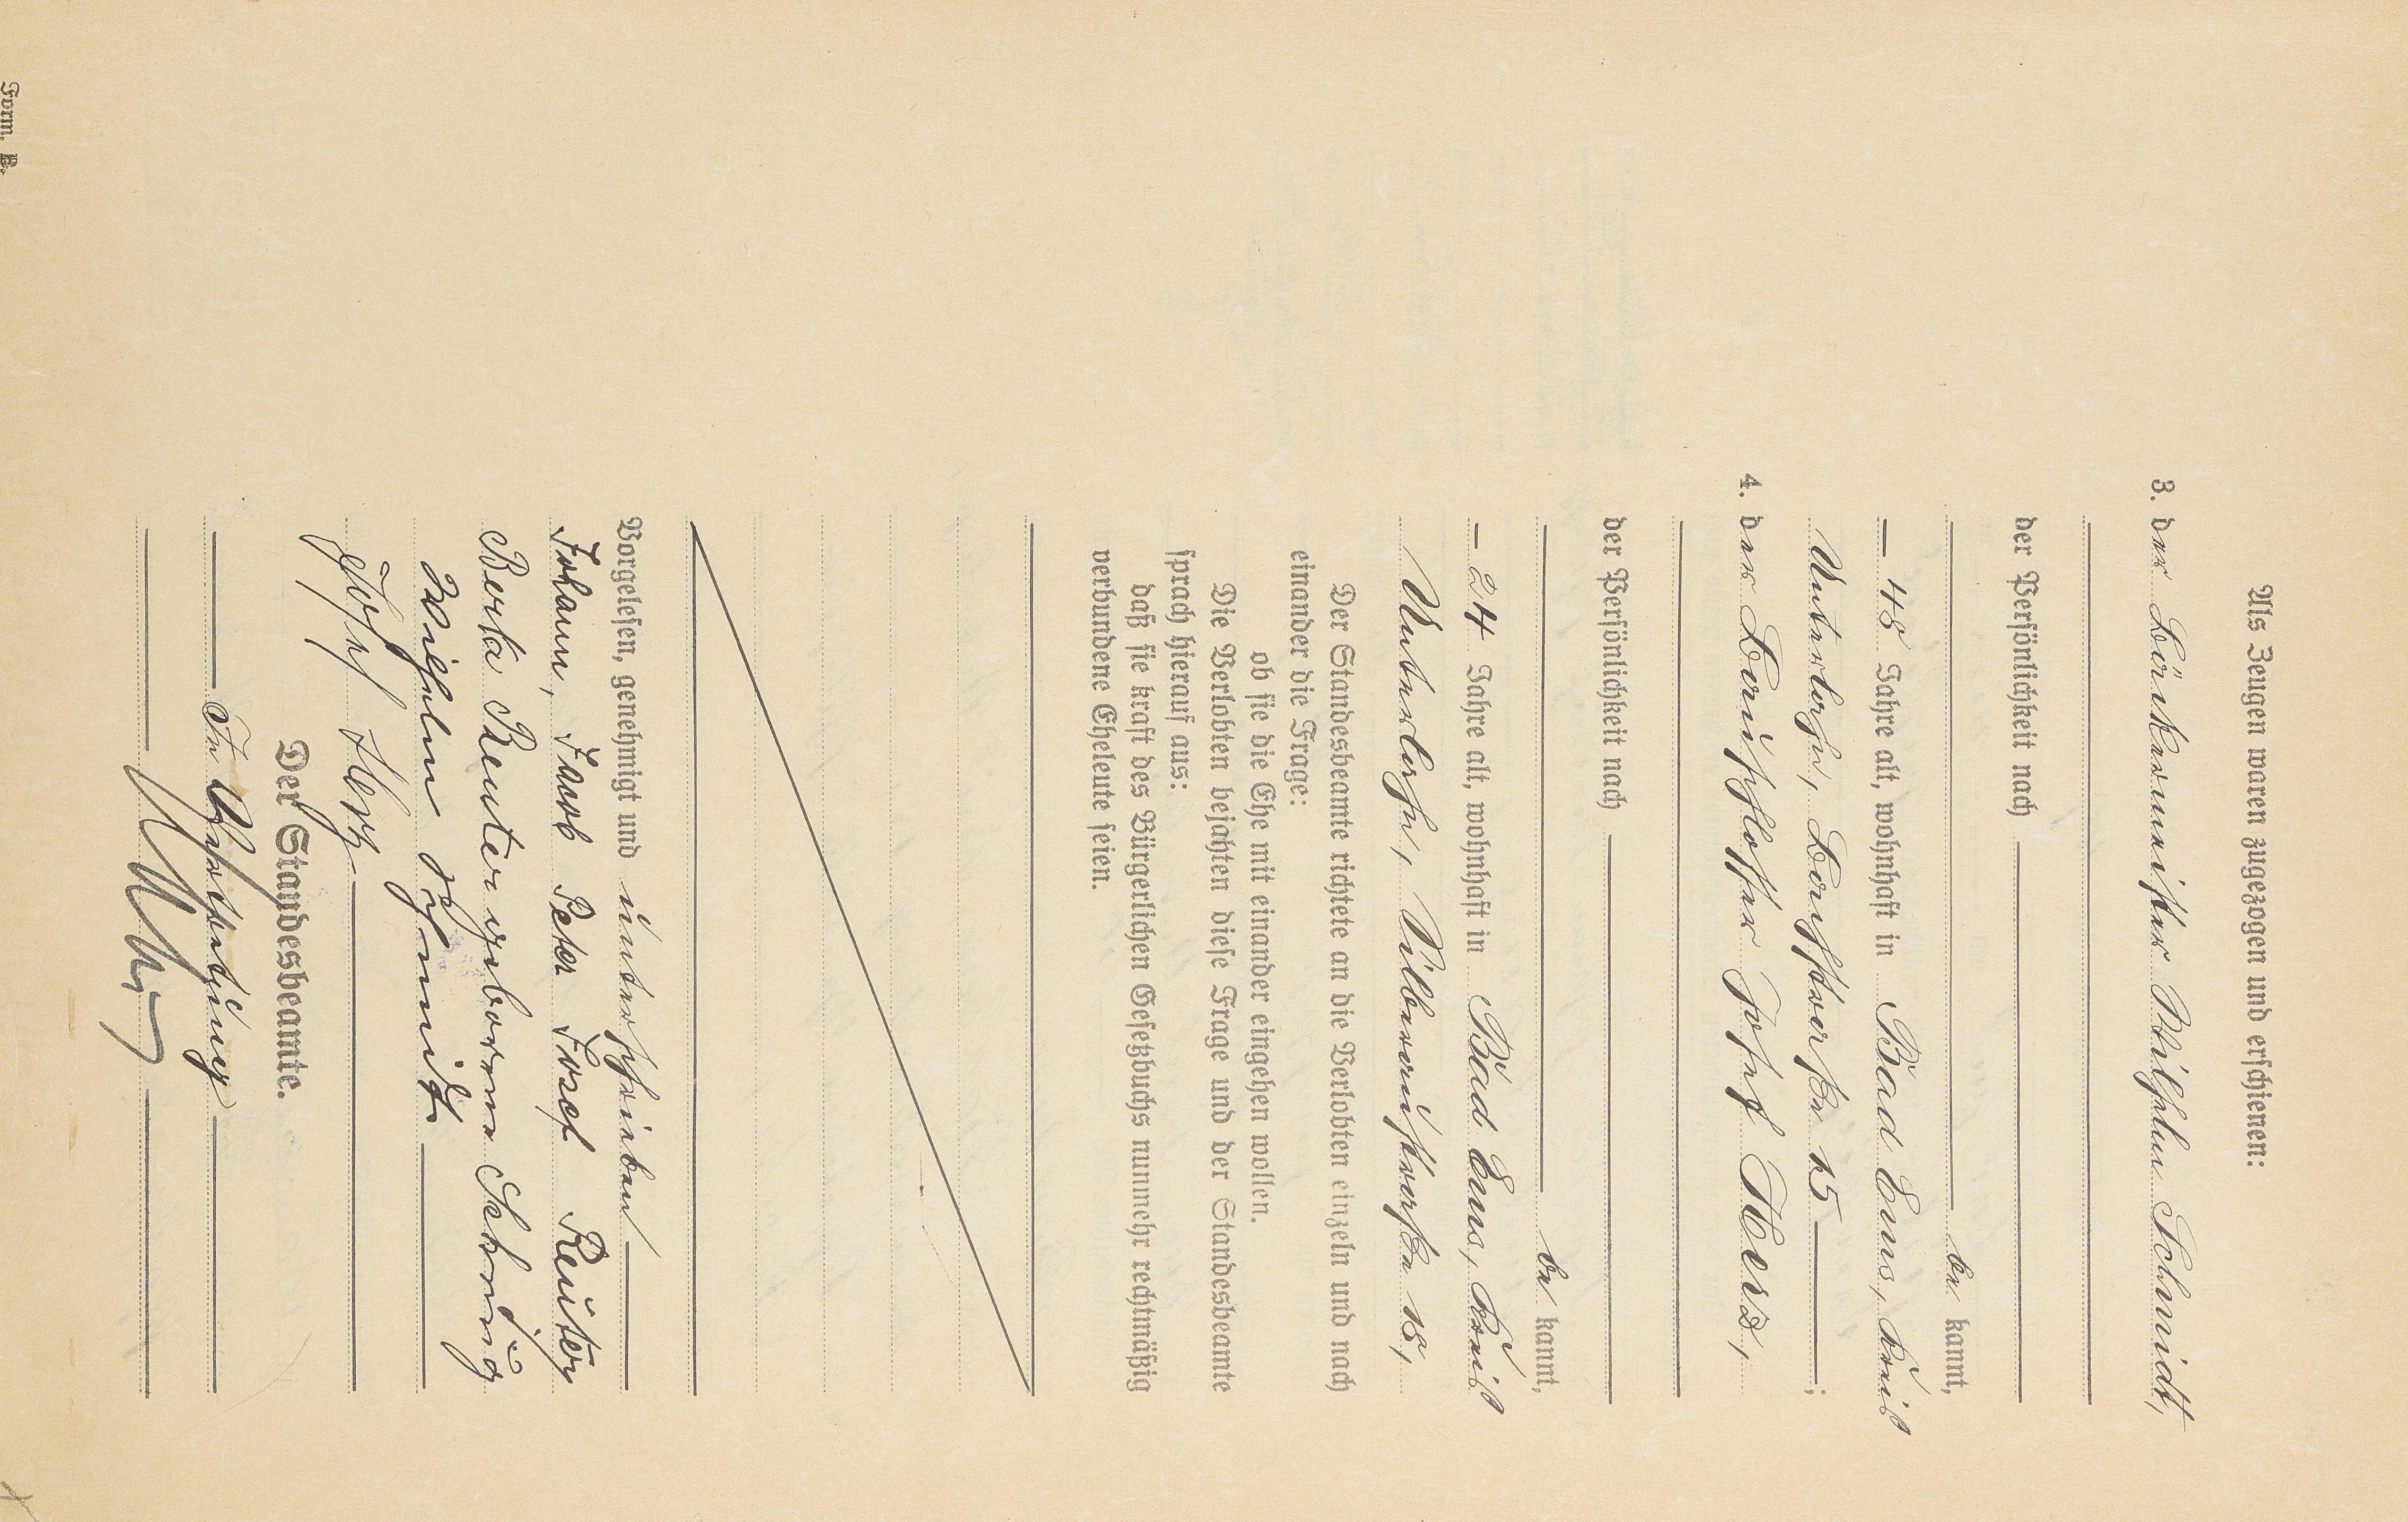 Als Zeugen waren zugezogen und erschienen:
3. der Bäckermeister Wilhelm Schmidt,
der Persönlichkeit nach
be kannt,
— 48 Jahre alt, wohnhaft in Bad Ems, Kreis
Unterlahn, 15 ;
4. der Bauschlosser Josef Herz,
der Persönlichkeit nach
be kannt,
— 24 Jahre alt, wohnhaft in Bad Ems, Kreis
Unterlahn, 18,
Der Standesbeamte richtete an die Verlobten einzeln und nach
einander die Frage:
ob sie die Ehe mit einander eingehen wollen.
Die Verlobten bejahten diese Frage und der Standesbeamte
sprach hierauf aus:
daß sie kraft des Bürgerlichen Gesetzbuchs nunmehr rechtmäßig
verbundene Eheleute seien.
Vorgelesen, genehmigt und unterschrieben
Johann, Jacob Peter Josef Reuter
Berta Reuter geborene
Wilhelm Schmidt
Josef Herz
Der Standesbeamte.
In Vertretung
Form. B.